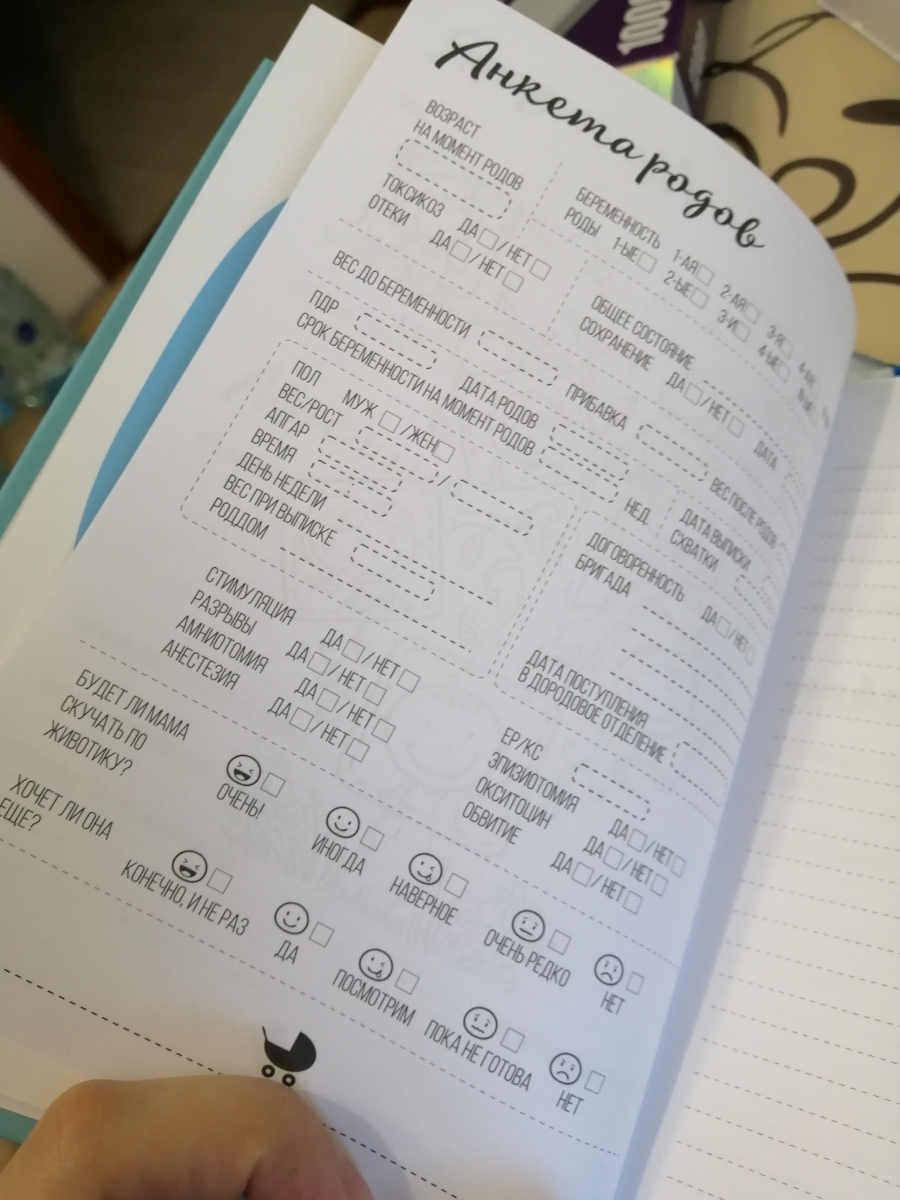 Анкета родов
ВОЗРАСТ
НА МОМЕНТ РОДОВ
БЕРЕМЕННОСТЬ 1-АЯ 2-АЯ 3-Я 4-АЯ
РОДЫ 1-ЫЕ 2-ЫЕ 3-И 4-ЫЕ
ТОКСИКОЗ ДА / НЕТ
ОТЕКИ ДА / НЕТ
ОБЩЕЕ СОСТОЯНИЕ
СОХРАНЕНИЕ ДА / НЕТ ДАТА
ВЕС ДО БЕРЕМЕННОСТИ ПРИБАВКА ВЕС ПОСЛЕ РОДОВ
ПДР ДАТА РОДОВ ДАТА ВЫПИСКИ
СРОК БЕРЕМЕННОСТИ НА МОМЕНТ РОДОВ НЕД. СХВАТКИ
ПОЛ МУЖ / ЖЕН
ВЕС/РОСТ /
АПГАР
ВРЕМЯ
ДЕНЬ НЕДЕЛИ
ВЕС ПРИ ВЫПИСКЕ
РОДДОМ
ДОГОВОРЕННОСТЬ ДА / НЕТ
БРИГАДА
ДАТА ПОСТУПЛЕНИЯ
В ДОРОДОВОЕ ОТДЕЛЕНИЕ
СТИМУЛЯЦИЯ ДА / НЕТ
РАЗРЫВЫ ДА / НЕТ
АМНИОТОМИЯ ДА / НЕТ
АНЕСТЕЗИЯ ДА / НЕТ
ЕР/КС
ЭПИЗИОТОМИЯ ДА / НЕТ
ОКСИТОЦИН ДА / НЕТ
ОБВИТИЕ ДА / НЕТ
БУДЕТ ЛИ МАМА
СКУЧАТЬ ПО
ЖИВОТИКУ?
ОЧЕНЬ! ИНОГДА НАВЕРНОЕ ОЧЕНЬ РЕДКО НЕТ
ХОЧЕТ ЛИ ОНА
ЕЩЕ?
КОНЕЧНО, И НЕ РАЗ ДА ПОСМОТРИМ ПОКА НЕ ГОТОВА НЕТ